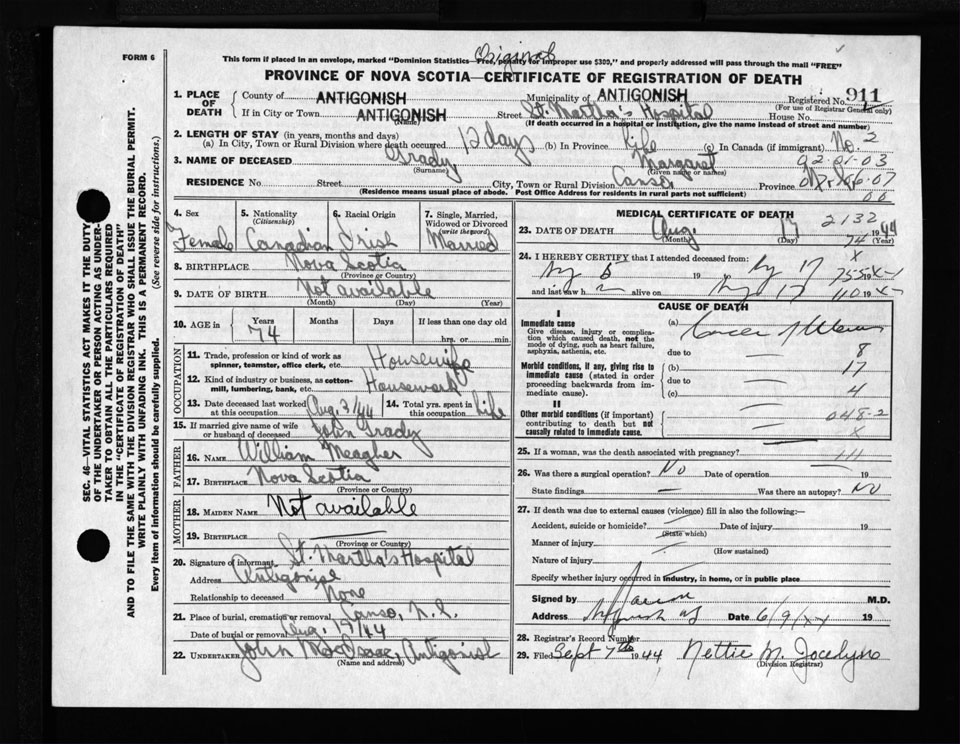 Original
FORM 6
This form if placed in an envelope, marked "Dominion Statistics—Free, penalty for improper use $300," and properly addressed will pass through the mail "FREE"
PROVINCE OF NOVA SCOTIA—CERTIFICATE OF REGISTRATION OF DEATH
SEC. 46—VITAL STATISTICS ACT MAKES IT THE DUTY
OF THE UNDERTAKER OR PERSON ACTING AS UNDER-
TAKER TO OBTAIN ALL THE PARTICULARS REQUIRED
IN THE "CERTIFICATE OF REGISTRATION OF DEATH"
AND TO FILE THE SAME WITH THE DIVISION REGISTRAR WHO SHALL ISSUE THE BURIAL PERMIT.
WRITE PLAINLY WITH UNFADING INK. THIS IS A PERMANENT RECORD.
Every item of information should be carefully supplied. (See reverse side for instructions.)
1. PLACE OF DEATH
County of ANTIGONISH Municipality of ANTIGONISH Registered No. 911
(For use of Registrar General only)
If in City or Town ANTIGONISH Street St. Martha's Hospital House No.
(Name) (If death occurred in a hospital or institution, give the name instead of street and number)
2. LENGTH OF STAY (in years, months and days)
(a) In City, Town or Rural Division where death occurred 12 days (b) In Province Life (c) In Canada (if immigrant) No. 2
3. NAME OF DECEASED Grady Margaret 02-01-03
(Surname) (Given name or names)
RESIDENCE No. Street City, Town or Rural Division Canso Province N.S.
(Residence means usual place of abode. Post Office Address for residents in rural parts not sufficient)
4. Sex
Female
5. Nationality
(Citizenship)
Canadian
6. Racial Origin
Irish
7. Single, Married,
Widowed or Divorced
(write the word)
Married
8. BIRTHPLACE Nova Scotia
(Province or Country)
9. DATE OF BIRTH Not available
(Month) (Day) (Year)
10. AGE in Years Months Days If less than one day old
74 hrs. or min.
OCCUPATION
11. Trade, profession or kind of work as
spinner, teamster, office clerk, etc. Housewife
12. Kind of industry or business, as cotton-
mill, lumbering, bank, etc. Housework
13. Date deceased last worked
at this occupation Aug. 3/44
14. Total yrs. spent in
this occupation Life
15. If married give name of wife
or husband of deceased John Grady
FATHER
16. Name William Meagher
17. Birthplace Nova Scotia
(Province or Country)
MOTHER
18. MAIDEN NAME Not available
19. BIRTHPLACE
(Province or Country)
20. Signature of informant St. Martha's Hospital
Address Antigonish
Relationship to deceased None
21. Place of burial, cremation or removal Canso, N.S.
Date of burial or removal Aug. 19/44
22. UNDERTAKER John MacIsaac, Antigonish
(Name and address)
MEDICAL CERTIFICATE OF DEATH
2132
23. DATE OF DEATH Aug. 17 1944
(Month) (Day) (Year)
74
24. I HEREBY CERTIFY that I attended deceased from:
19 to 17
and last saw h alive on 17 19
CAUSE OF DEATH
I
Immediate cause
Give disease, injury or complica-
tion which caused death, not the
mode of dying, such as heart failure,
asphyxia, asthenia, etc.
(a) Cancer of Uterus
due to 8
Morbid conditions, if any, giving rise to
immediate cause (stated in order
proceeding backwards from im-
mediate cause).
(b) 17
due to
(c) 4
II
Other morbid conditions (if important)
contributing to death but not
causally related to immediate cause.
048-2
X
25. If a woman, was the death associated with pregnancy?
26. Was there a surgical operation? No Date of operation 19
State findings Was there an autopsy? No
27. If death was due to external causes (violence) fill in also the following:—
Accident, suicide or homicide? Date of injury 19
(State which)
Manner of injury
(How sustained)
Nature of injury
Specify whether injury occurred in industry, in home, or in public place
Signed by M.D.
Address Date 6/9/xx 19
28. Registrar's Record Number
29. Filed Sept 7th 1944 Nettie M. Jocelyne
(Division Registrar)